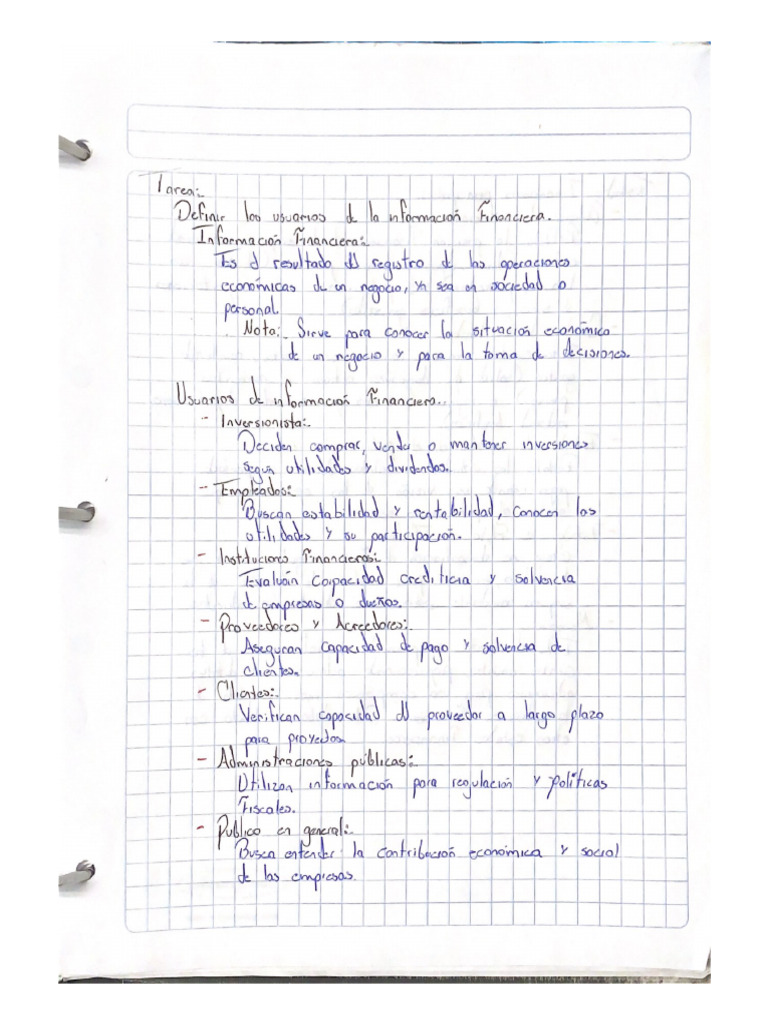 Tarea:
Definir los usuarios de la información Financiera.
Información Financiera:
Es el resultado del registro de las operaciones
económicas de un negocio, ya sea en sociedad o
personal.
Nota: Sirve para conocer la situación económica
de un negocio y para la toma de decisiones.
Usuarios de información Financiera.
- Inversionista:
Deciden comprar, vender o mantener inversiones
según utilidades y dividendos.
- Empleados:
Buscan estabilidad y rentabilidad, conocer las
utilidades y su participación.
- Instituciones Financieras:
Evalúan capacidad crediticia y solvencia
de empresas o dueños.
- Proveedores y Acreedores:
Aseguran capacidad de pago y solvencia de
clientes.
- Clientes:
Verifican capacidad del proveedor a largo plazo
para proyectos.
- Administraciones públicas:
Utilizan información para regulación y políticas
Fiscales.
- Publico en general:
Busca entender la contribución económica y social
de las empresas.